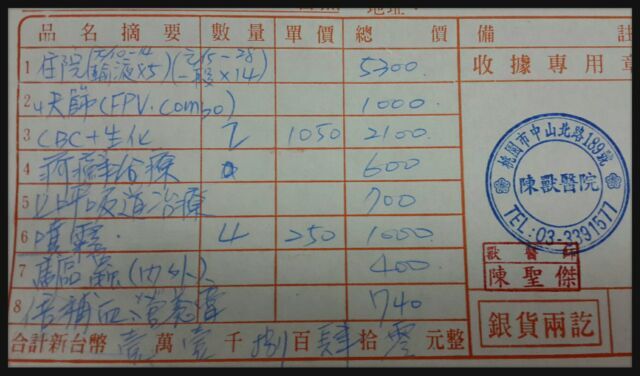 品名摘要 數量 單價 總價 備註
1 住院(2/10-14 輸液×5)(2/15-28 一般×14) 5300.
收據專用章
2 快篩(FPV.Combo) 1000.
3 CBC+生化 2 1050 2100.
4 疥癬治療 600
5 上呼吸道治療 700
6 噴霧. 4 250 1000.
7 驅蟲(內外). 400
8 補血.營養膏 740
合計新台幣 壹萬壹千捌百肆拾零元整
桃園市中山北路189號
陳獸醫院
TEL:03-3391577
獸醫師
陳聖傑
銀貨兩訖